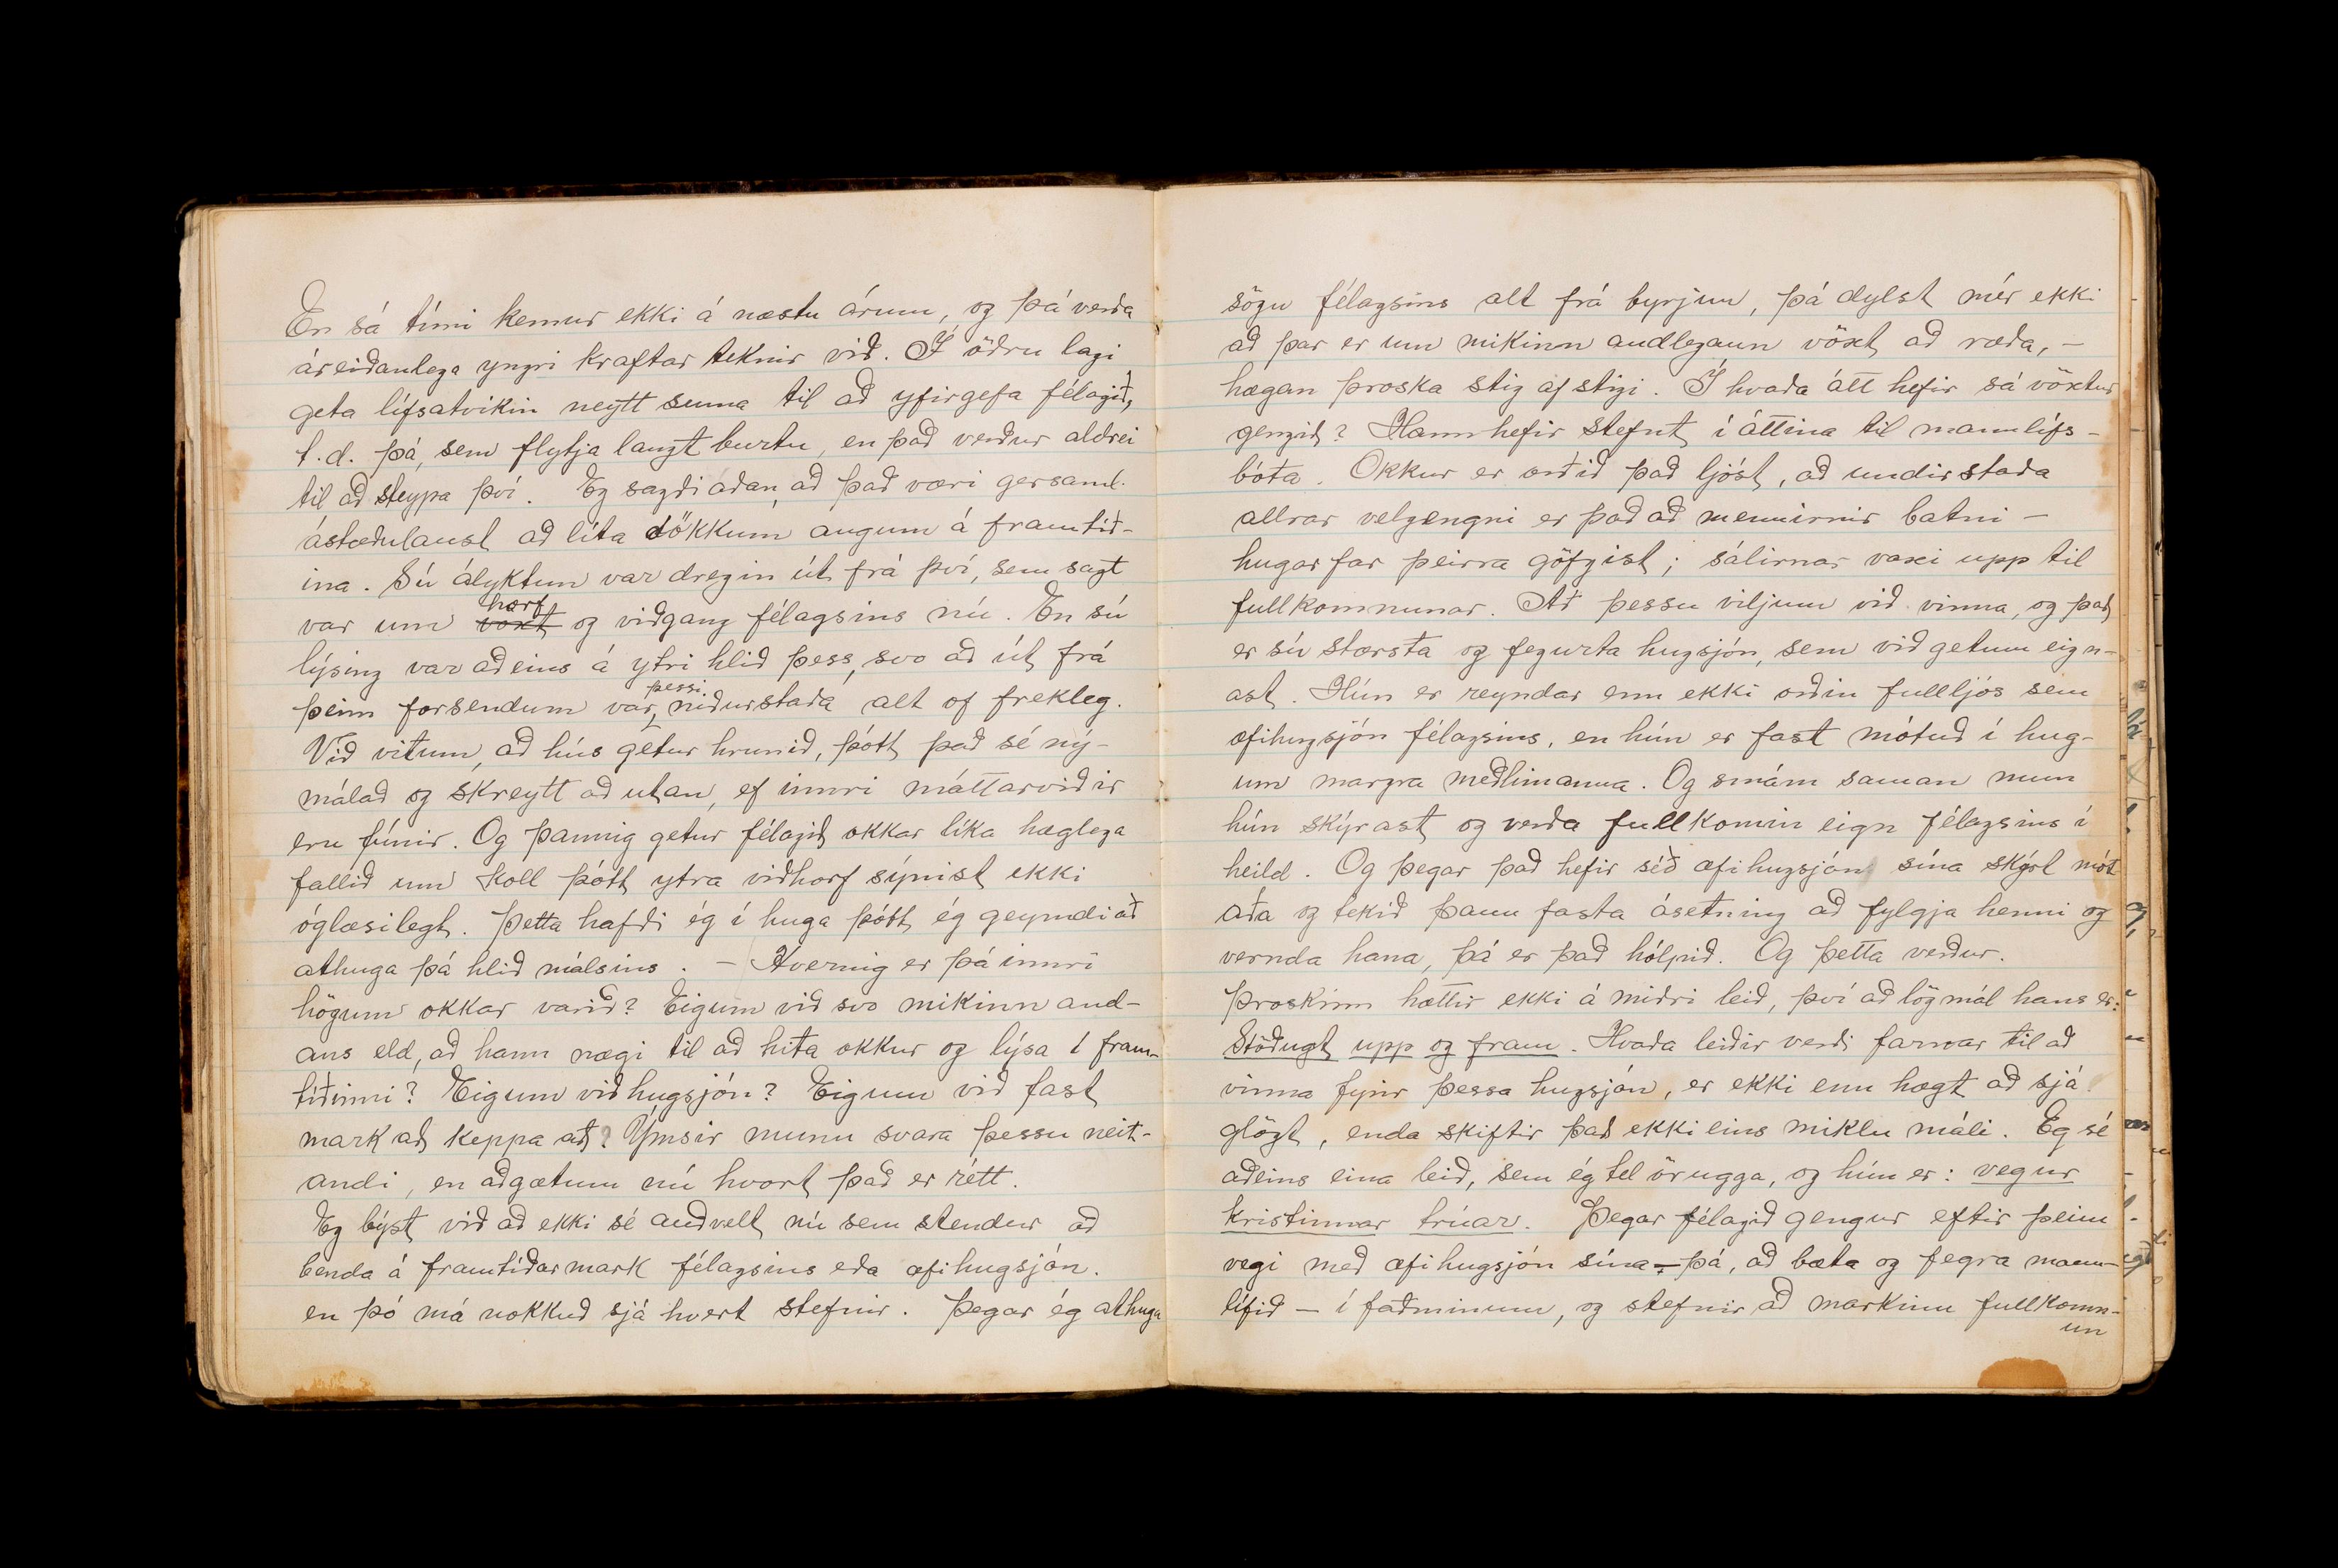 En sá tími kemur ekki á næstu árum, og þá verða
áreiðanlega yngri kraftar teknir við. Í öðru lagi
geta lífsatvikin neytt suma til að yfirgefa félagið,
t.d. þá, sem flytja langt burtu, en það verður aldrei
til að steypa því. Eg sagði áðan, að það væri gersaml.
ástæðulaust að líta dökkum augum á framtíð-
ina. Sú ályktun var dregin út frá því, sem sagt
var um voxt horf og viðgang félagsins nú. En sú
lýsing var aðeins á ytri hlið þess, svo að út frá
þeim forsendum var þessi niðurstaða alt of frekleg.
Við vitum, að hús getur hrunið, þótt það sé ný-
málað og skreytt að utan, ef innri máttarviðir
eru fúnir. Og þannig getur félagið okkar líka hæglega
fallið um koll þótt ytra viðhorf sýnist ekki
óglæsilegt. Þetta hafði ég í huga þótt ég geymdi að
athuga þá hlið málsins. – Hvernig er þá innri
högum okkar varið? Eigum við svo mikinn and-
ans eld, að hann nægi til að hita okkur og lýsa í fram-
tíðinni? Eigum við hugsjón? Eigum við fast
mark að keppa að? Ýmsir munu svara þessu neit-
andi, en aðgætum nú hvort það er rétt.
Eg býst við að ekki sé auðvelt nú sem stendur að
benda á framtíðarmark félagsins eða æfihugsjón.
en þó má nokkuð sjá hvert stefnir. Þegar ég athuga
sögu félagsins alt frá byrjun, þá dylst mér ekki
að þar er um mikinn andlegann vöxt að ræða, –
hægan þroska stig af stigi. Í hvaða átt hefir sá vöxtur
gengið? Hann hefir stefnt í áttina til mannlífs-
bóta. Okkur er orðið það ljóst, að undirstaða
allrar velgengni er það að mennirnir batni –
hugarfar þeirra göfgist; sálirnar vaxi upp til
fullkomnunar. Að þessu viljum við vinna, og það
er sú stærsta og fegursta hugsjón, sem við getum eign-
ast. Hún er reyndar enn ekki orðin fullljós sem
æfihugsjón félagsins, en hún er fast mótuð í hug-
um margra meðlimanna. Og smám saman mun
hún skýrast og verða fullkomin eign félagsins í
heild. Og þegar það hefir séð æfihugsjón sína skýrt mót
aða og tekið þann fasta ásetning að fylgja henni og
vernda hana, þá er það hólpið. Og þetta verður.
Þroskinn hættir ekki á miðri leið, því að lögmál hans er:
Stöðugt upp og fram. Hvaða leiðir verði farnar til að
vinna fyrir þessa hugsjón, er ekki enn hægt að sjá
glögt, enda skiftir það ekki eins miklu máli. Eg sé
aðeins eina leið, sem ég tel örugga, og hún er: vegur
kristinnar trúar. Þegar félagið gengur eftir þeim
vegi með æfihugsjón sína – þá, að bæta og fegra mann-
lífið – í faðminum, og stefnir að markinu fullkomn-
un